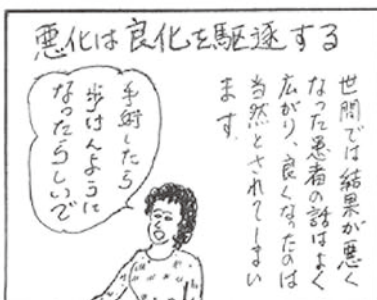 悪化は良化を駆逐する
世間では結果が悪く
なった患者の話はよく
広がり、良くなったのは
当然とされてしまい
ます.
手術したら
歩けんように
なったらしいで